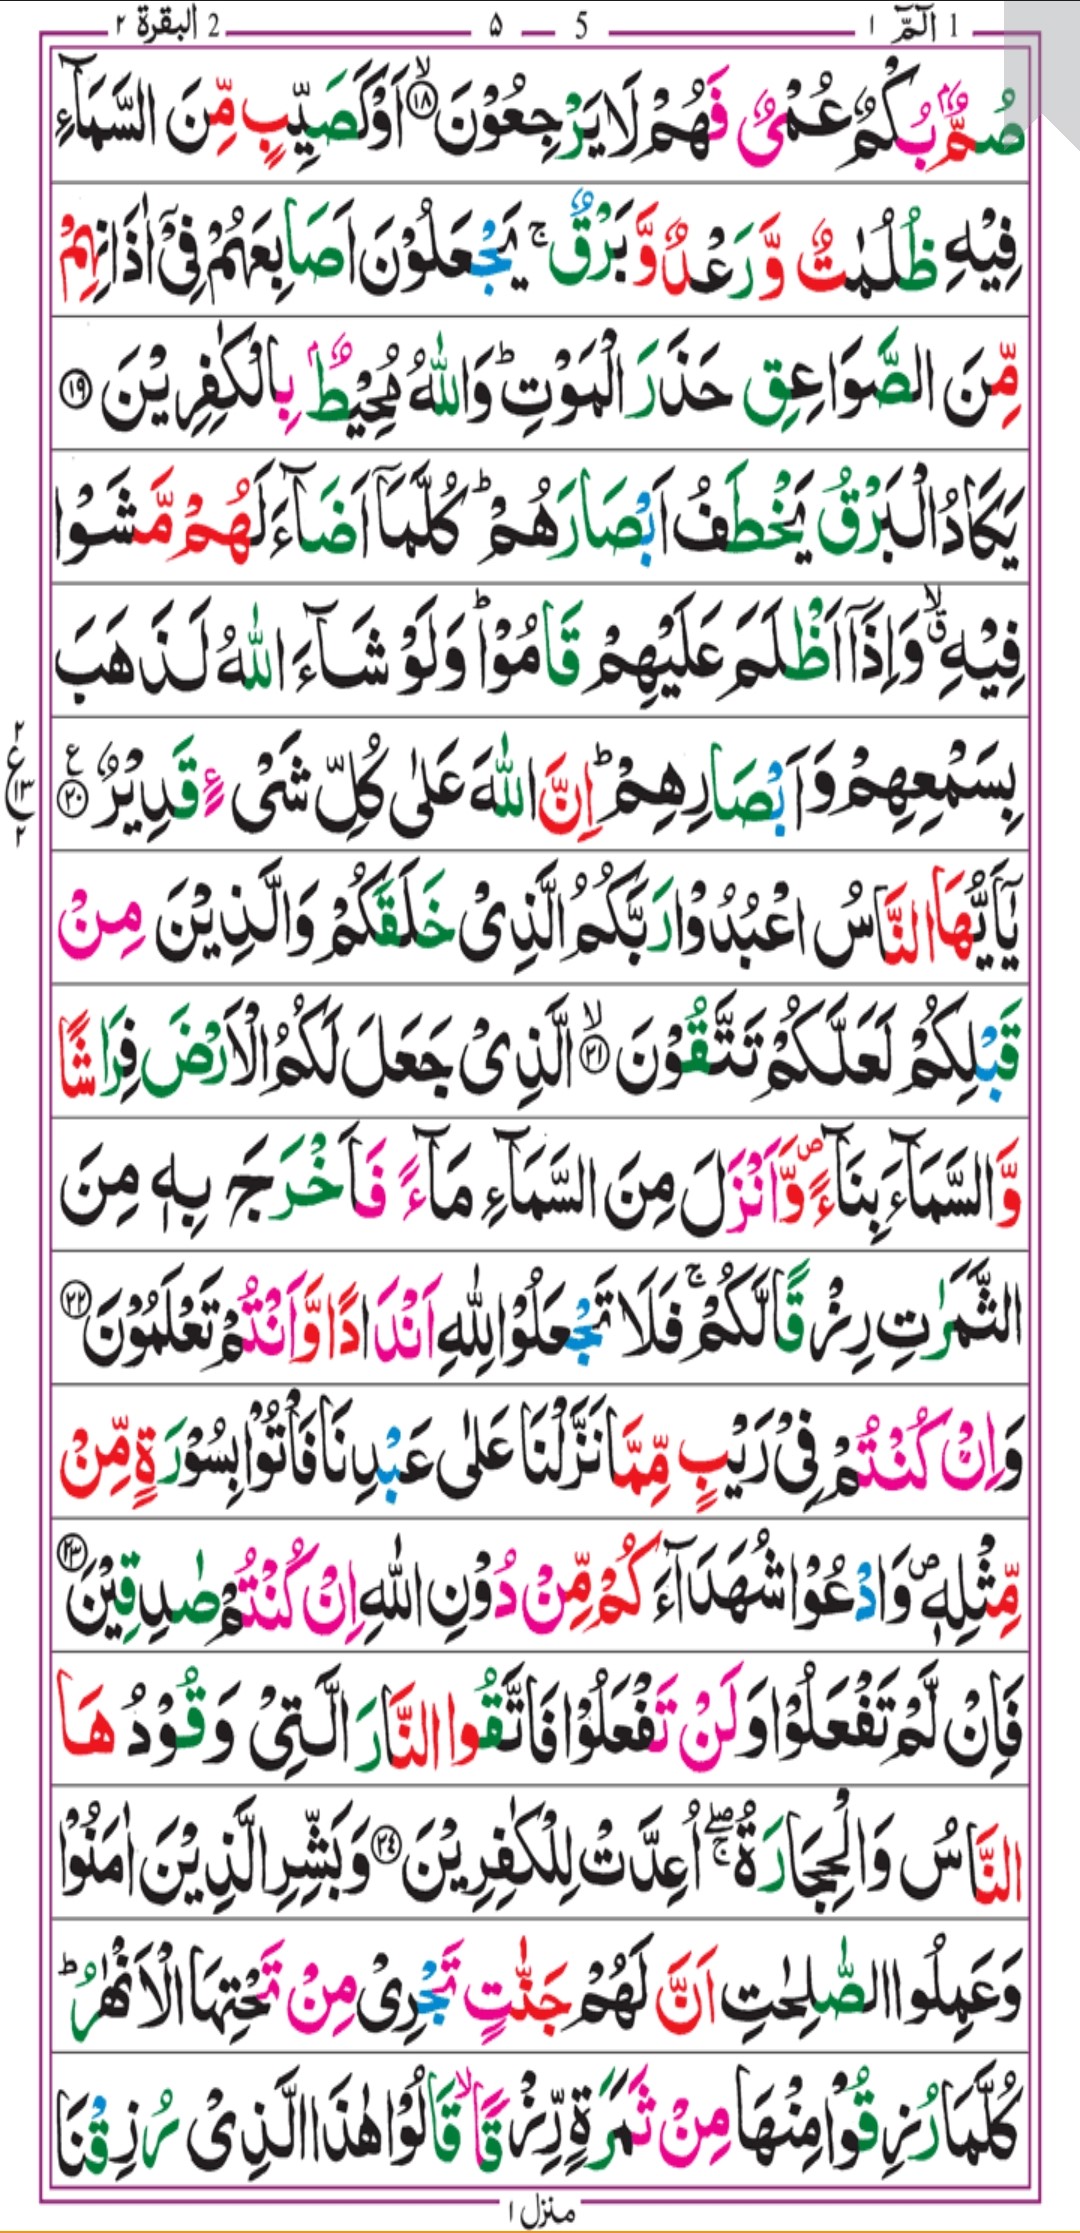 1 الٓمّٓ ١ — 5 — ۵ — 2 البقرة ٢
صُمٌّۢ بُكْمٌ عُمْىٌ فَهُمْ لَا يَرْجِعُوْنَ ۙ﴿١٨﴾ اَوْ كَصَيِّبٍ مِّنَ السَّمَآءِ
فِيْهِ ظُلُمٰتٌ وَّرَعْدٌ وَّبَرْقٌ ۚ يَجْعَلُوْنَ اَصَابِعَهُمْ فِىْٓ اٰذَانِهِمْ
مِّنَ الصَّوَاعِقِ حَذَرَ الْمَوْتِ ؕ وَاللّٰهُ مُحِيْطٌۢ بِالْكٰفِرِيْنَ ﴿١٩﴾
يَكَادُ الْبَرْقُ يَخْطَفُ اَبْصَارَهُمْ ؕ كُلَّمَآ اَضَآءَ لَهُمْ مَّشَوْا
فِيْهِ ۙۗ وَاِذَآ اَظْلَمَ عَلَيْهِمْ قَامُوْا ؕ وَلَوْ شَآءَ اللّٰهُ لَذَهَبَ
بِسَمْعِهِمْ وَاَبْصَارِهِمْ ؕ اِنَّ اللّٰهَ عَلٰى كُلِّ شَىْءٍ قَدِيْرٌ ﴿٢٠﴾ ع
٢ ع ١٣ ٢
يٰٓاَيُّهَا النَّاسُ اعْبُدُوْا رَبَّكُمُ الَّذِىْ خَلَقَكُمْ وَالَّذِيْنَ مِنْ
قَبْلِكُمْ لَعَلَّكُمْ تَتَّقُوْنَ ۙ﴿٢١﴾ الَّذِىْ جَعَلَ لَكُمُ الْاَرْضَ فِرَاشًا
وَّالسَّمَآءَ بِنَآءً ۪ وَّاَنْزَلَ مِنَ السَّمَآءِ مَآءً فَاَخْرَجَ بِهٖ مِنَ
الثَّمَرٰتِ رِزْقًا لَّكُمْ ۚ فَلَا تَجْعَلُوْا لِلّٰهِ اَنْدَادًا وَّاَنْتُمْ تَعْلَمُوْنَ ﴿٢٢﴾
وَاِنْ كُنْتُمْ فِىْ رَيْبٍ مِّمَّا نَزَّلْنَا عَلٰى عَبْدِنَا فَاْتُوْا بِسُوْرَةٍ مِّنْ
مِّثْلِهٖ ۪ وَادْعُوْا شُهَدَآءَكُمْ مِّنْ دُوْنِ اللّٰهِ اِنْ كُنْتُمْ صٰدِقِيْنَ ﴿٢٣﴾
فَاِنْ لَّمْ تَفْعَلُوْا وَلَنْ تَفْعَلُوْا فَاتَّقُوا النَّارَ الَّتِىْ وَقُوْدُهَا
النَّاسُ وَالْحِجَارَةُ ۖۚ اُعِدَّتْ لِلْكٰفِرِيْنَ ﴿٢٤﴾ وَبَشِّرِ الَّذِيْنَ اٰمَنُوْا
وَعَمِلُوا الصّٰلِحٰتِ اَنَّ لَهُمْ جَنّٰتٍ تَجْرِىْ مِنْ تَحْتِهَا الْاَنْهٰرُ ؕ
كُلَّمَا رُزِقُوْا مِنْهَا مِنْ ثَمَرَةٍ رِّزْقًا ۙ قَالُوْا هٰذَا الَّذِىْ رُزِقْنَا
منزل ١